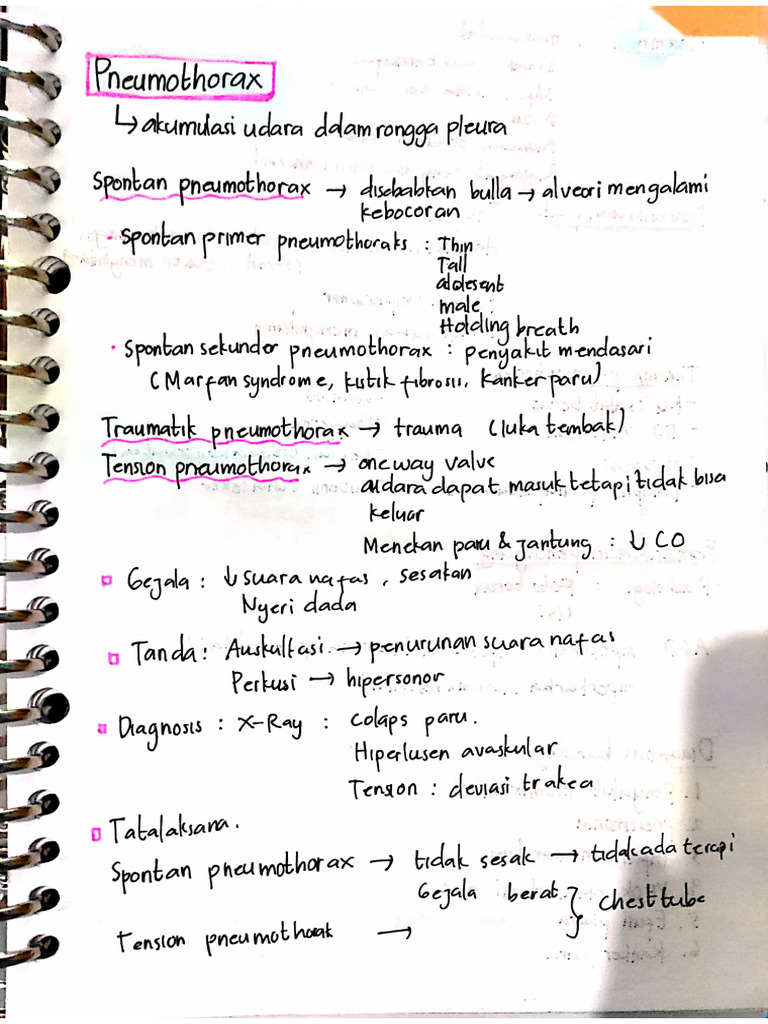 Pneumothorax
↳ akumulasi udara dalam rongga pleura
Spontan pneumothorax → disebabkan bulla → alveori mengalami
kebocoran
• Spontan primer pneumothoraks : Thin
Tall
adolesent
male
Holding breath
• Spontan sekunder pneumothorax : penyakit mendasari
(Marfan syndrome, kistik fibrosis, kanker paru)
Traumatik pneumothorax → trauma (luka tembak)
Tension pneumothorax → one way valve
udara dapat masuk tetapi tidak bisa
keluar
Menekan paru & jantung : ↓ CO
Gejala : ↓ suara nafas, sesakan
Nyeri dada
Tanda : Auskultasi → penurunan suara nafas
Perkusi → hipersonor
Diagnosis : X-Ray : colaps paru.
Hiperlusen avaskular
Tension : deviasi trakea
Tatalaksana.
Spontan pneumothorax → tidak sesak → tidak ada terapi
Gejala berat } chest tube
Tension pneumothorak →